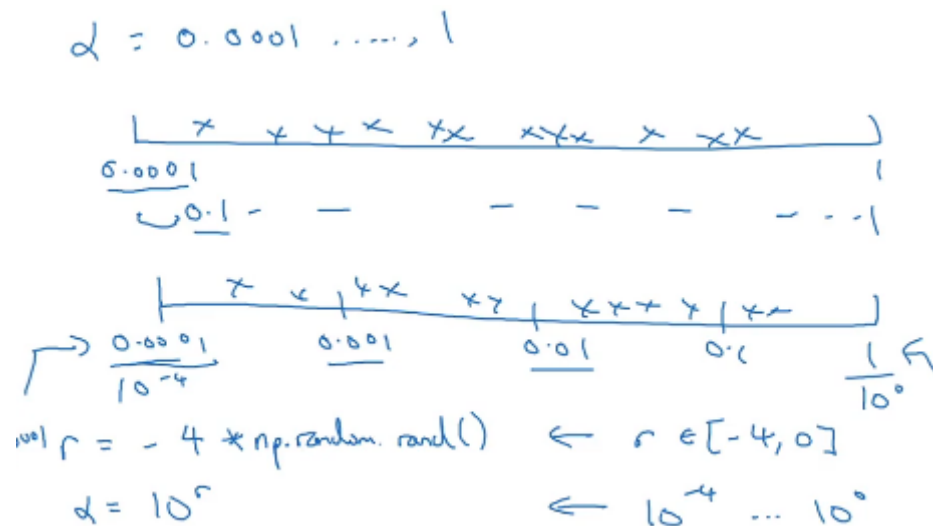 α = 0.0001 ....., 1
x x x x xx xxx x xx
0.0001 1
0.1 - - - - - - ... 1
x x xx xx xxxx xx
0.0001 0.001 0.01 0.1 1
10⁻⁴ 10⁰
r = -4 * np.random.rand() ← r ∈ [-4, 0]
α = 10ʳ ← 10⁻⁴ ... 10⁰